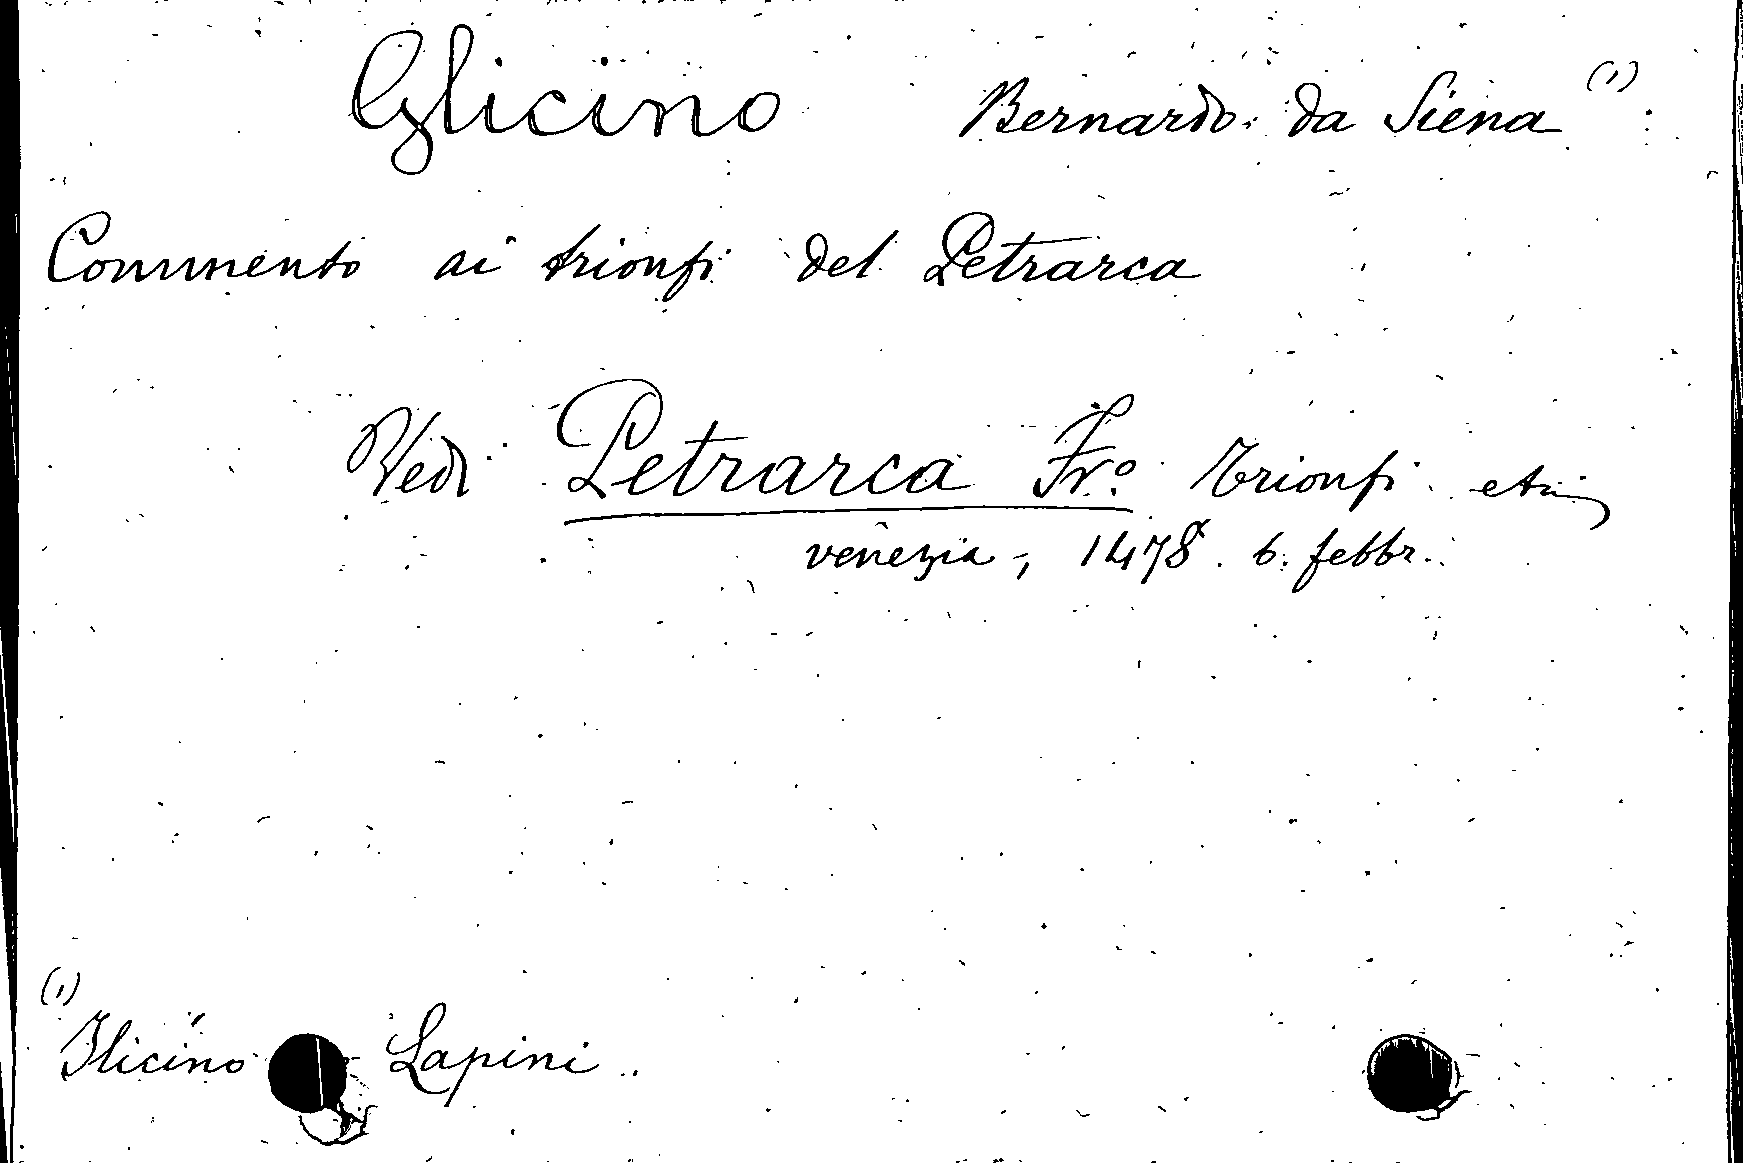 Glicino Bernardo da Siena (1)
Commento ai trionfi del Petrarca
Vedi Petrarca Fr.º Trionfi etc
venezia, 1478. 6. febbr.
(1)
Ilicino Lapini